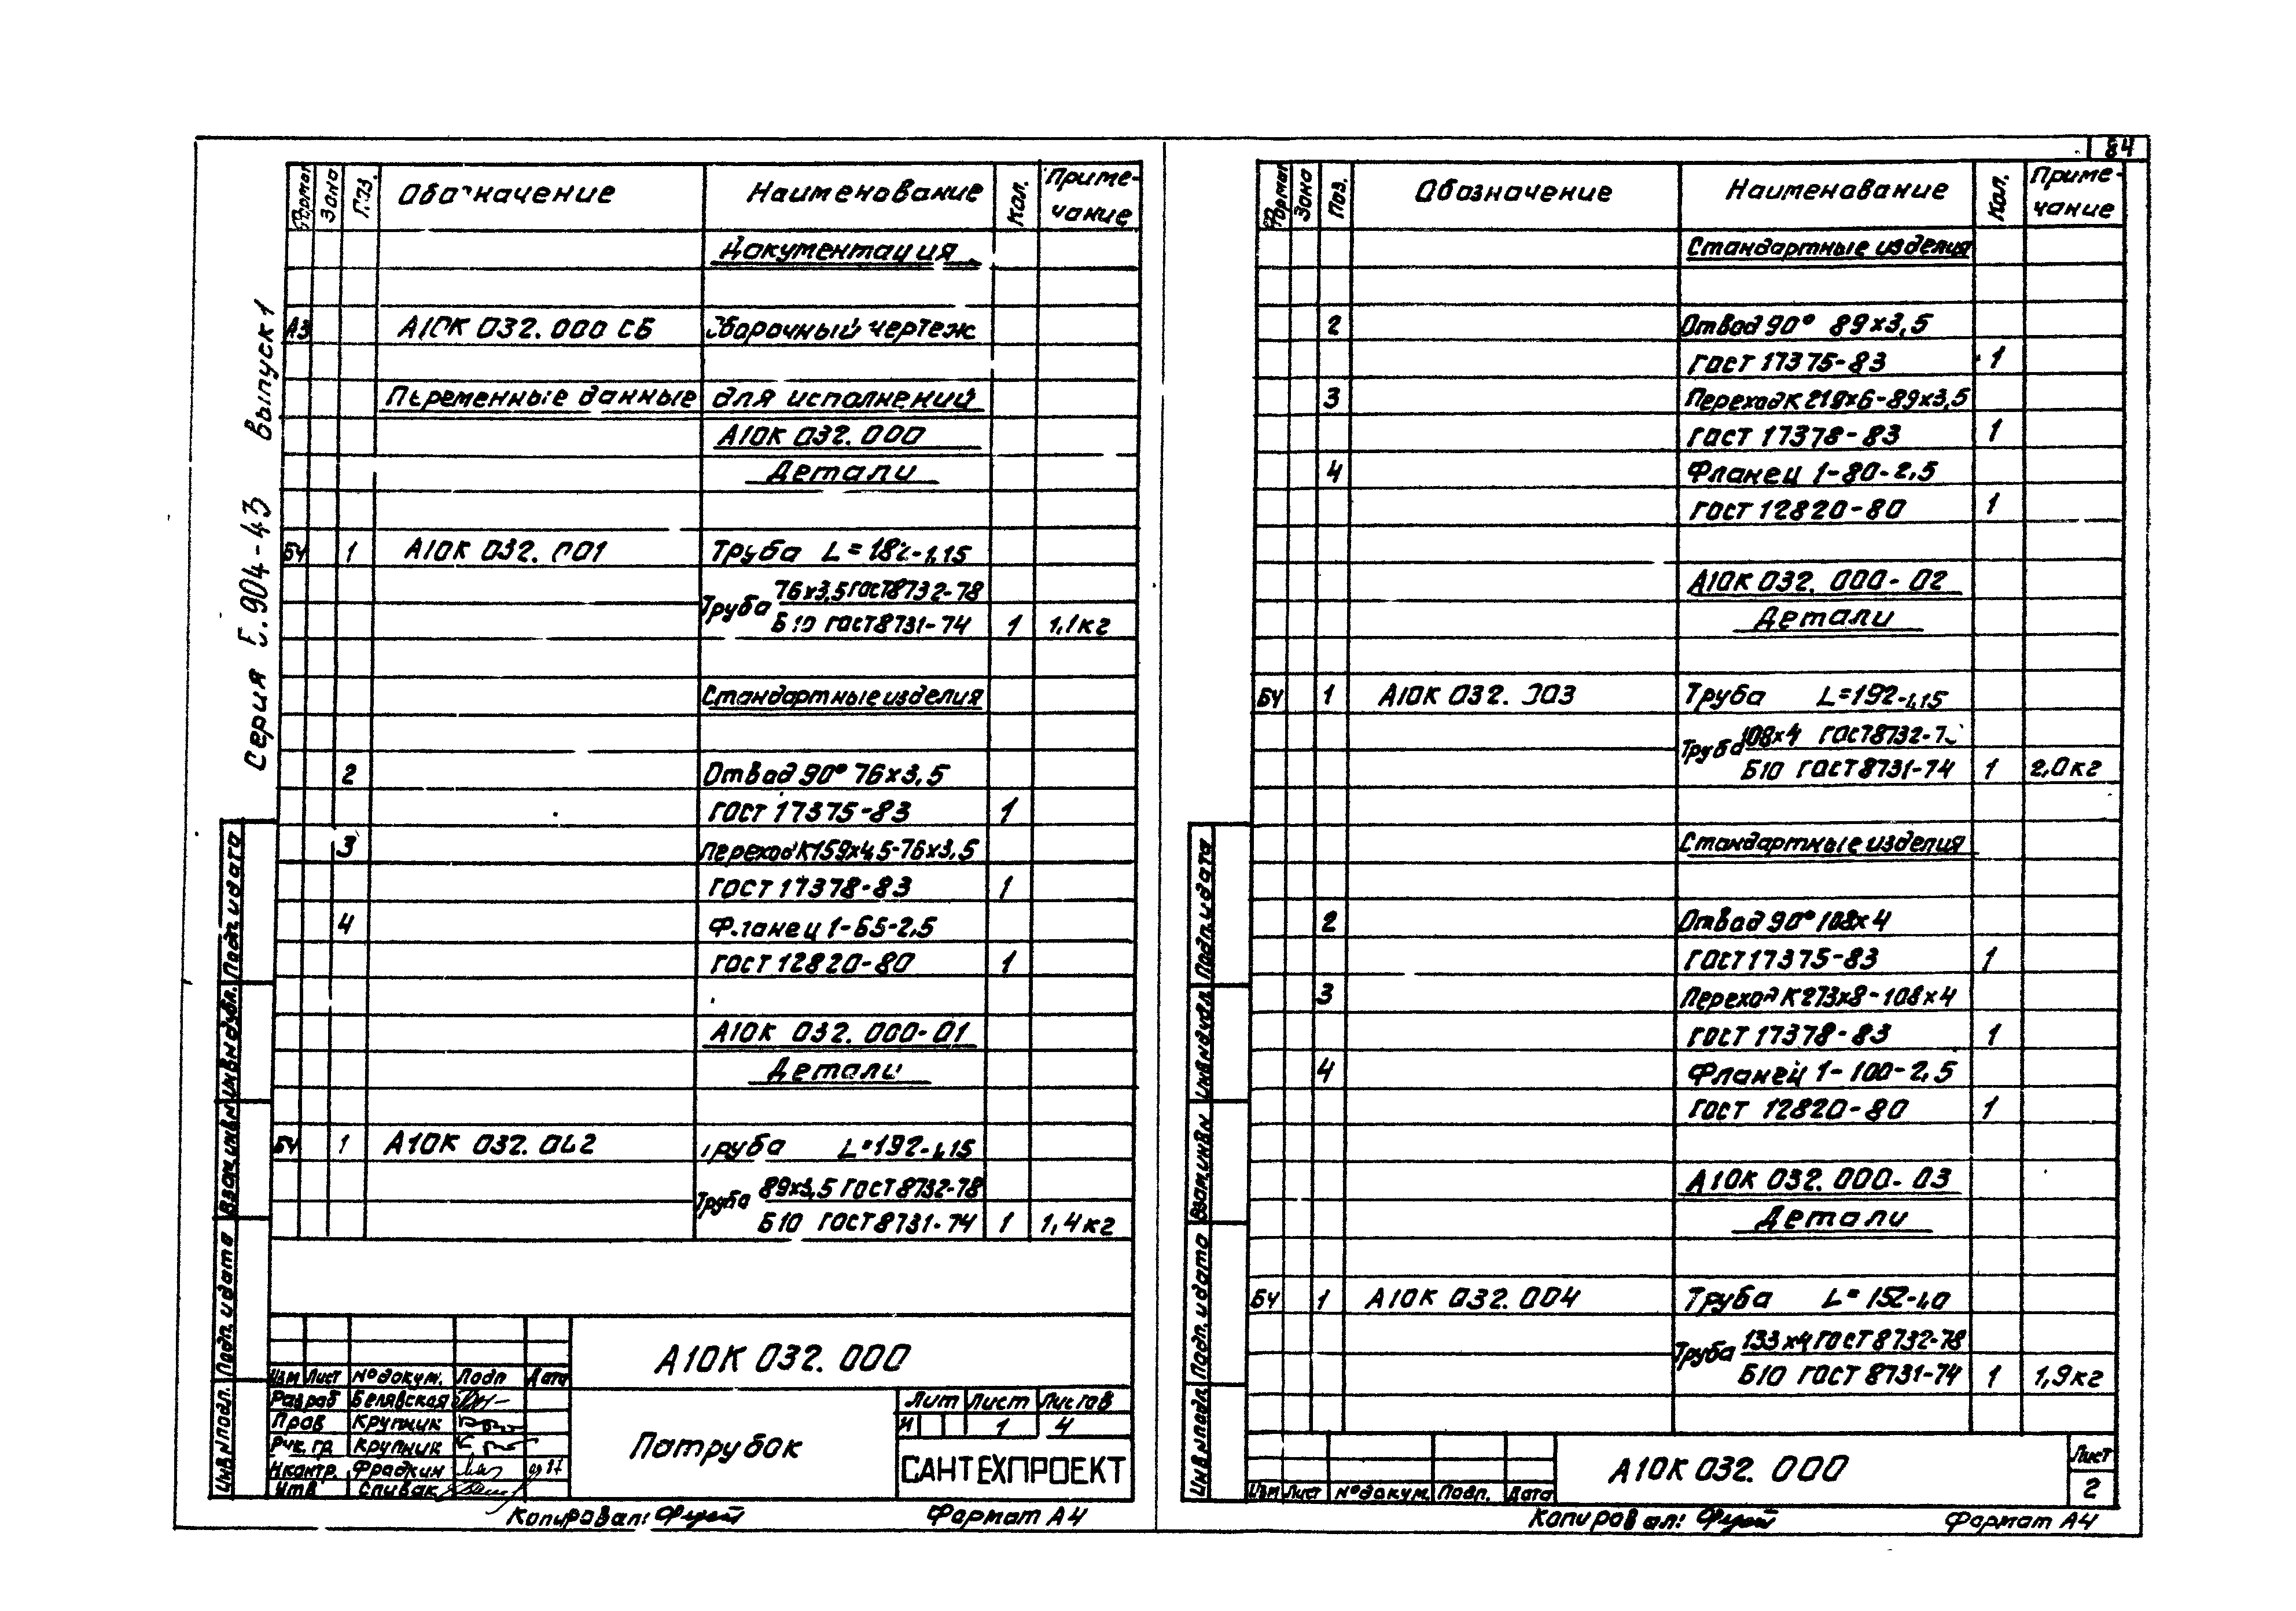 84
Серия 5.904-43 Выпуск 1
Формат Зона Поз. Обозначение Наименование Кол. Примечание
Документация
А3 А10К 032.000 СБ Сборочный чертеж
Переменные данные для исполнений
А10К 032.000
Детали
БЧ 1 А10К 032.001 Труба L=182-1,15
76х3,5 ГОСТ 8732-78
Труба
Б10 ГОСТ 8731-74 1 1,1кг
Стандартные изделия
2 Отвод 90° 76х3,5
ГОСТ 17375-83 1
3 Переход К159х4,5-76х3,5
ГОСТ 17378-83 1
4 Фланец 1-65-2,5
ГОСТ 12820-80 1
А10К 032.000-01
Детали
БЧ 1 А10К 032.002 Труба L=192-1,15
89х3,5 ГОСТ 8732-78
Труба
Б10 ГОСТ 8731-74 1 1,4кг
Инв.Nподл. Подп. и дата Взам.инв.N Инв.N дубл. Подп. и дата
А10К 032.000
Изм Лист N° докум. Подп Дата
Разраб Белявская
Пров Крупник
Рук. гр. Крупник
Н.контр. Фрадкин
Утв Спивак
Патрубок
Лит Лист Листов
И 1 4
САНТЕХПРОЕКТ
Копировал: Формат А4
Формат Зона Поз. Обозначение Наименование Кол. Примечание
Стандартные изделия
2 Отвод 90° 89х3,5
ГОСТ 17375-83 1
3 Переход К 219х6-89х3,5
ГОСТ 17378-83 1
4 Фланец 1-80-2,5
ГОСТ 12820-80 1
А10К 032.000-02
Детали
БЧ 1 А10К 032.003 Труба L=192-1,15
108х4 ГОСТ 8732-78
Труба
Б10 ГОСТ 8731-74 1 2,0кг
Стандартные изделия
2 Отвод 90° 108х4
ГОСТ 17375-83 1
3 Переход К 273х8-108х4
ГОСТ 17378-83 1
4 Фланец 1-100-2,5
ГОСТ 12820-80 1
А10К 032.000-03
Детали
БЧ 1 А10К 032.004 Труба L=152-1,0
133х4 ГОСТ 8732-78
Труба
Б10 ГОСТ 8731-74 1 1,9кг
Инв.Nподл. Подп. и дата Взам.инв.N Инв.N дубл. Подп. и дата
Изм Лист N° докум. Подп. Дата
А10К 032.000
Лист
2
Копировал: Формат А4